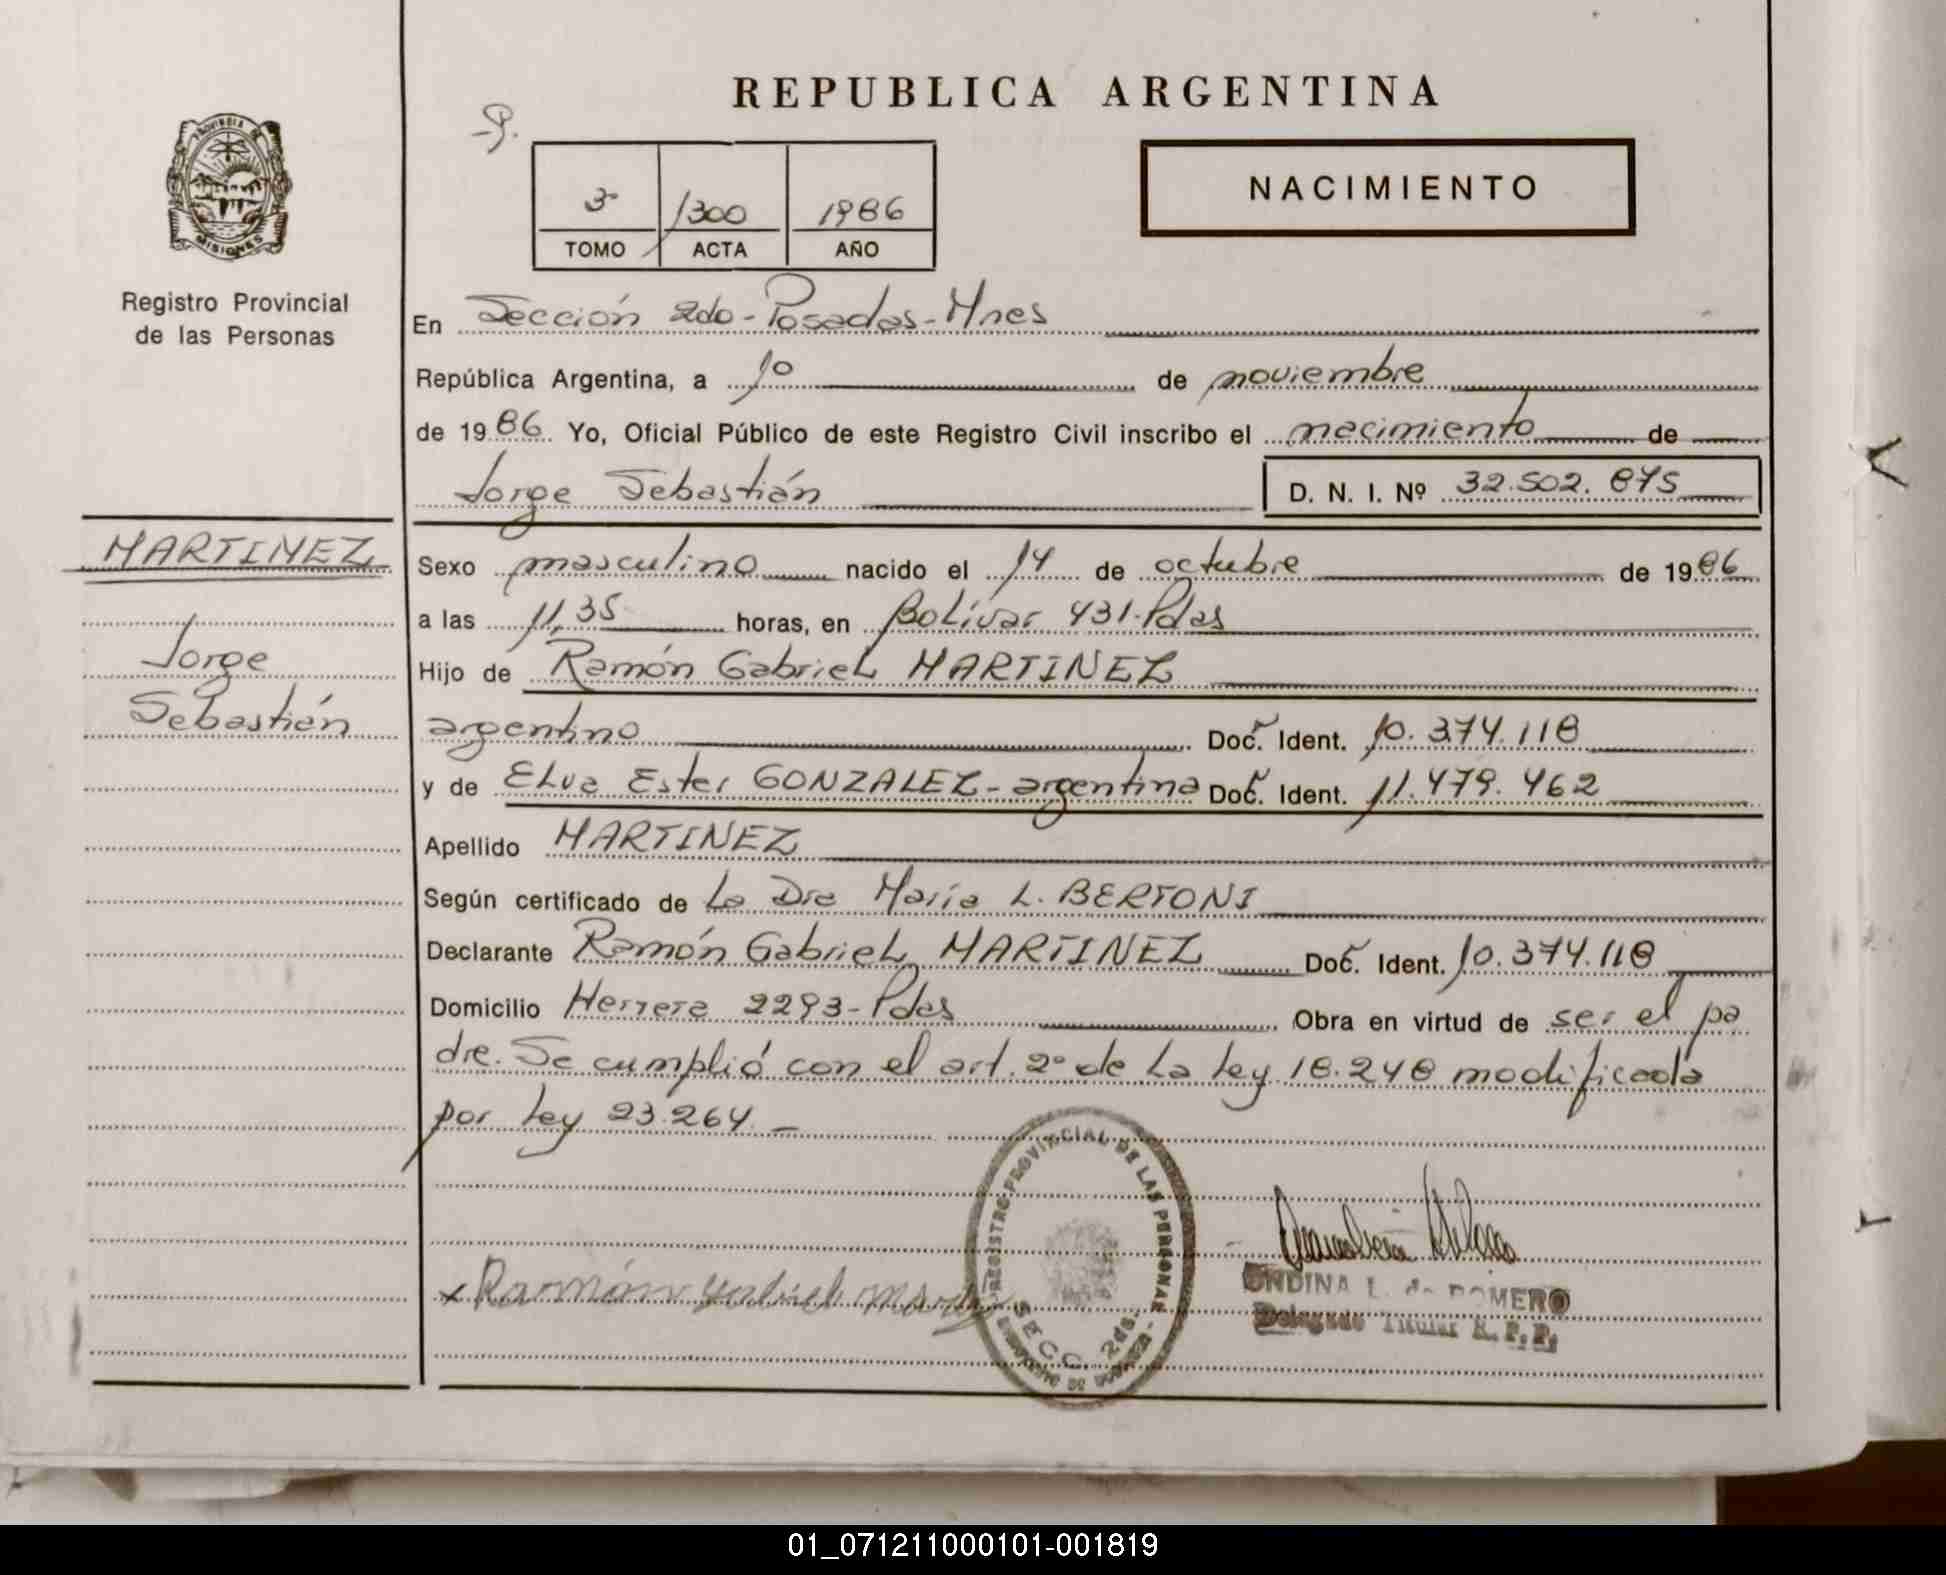 REPUBLICA ARGENTINA
PROVINCIA DE
MISIONES
Registro Provincial
de las Personas
3º 1300 1986
TOMO ACTA AÑO
NACIMIENTO
En Sección 2do-Posadas-Mnes
República Argentina, a 10 de noviembre
de 1986 Yo, Oficial Público de este Registro Civil inscribo el nacimiento de
Jorge Sebastián D. N. I. Nº 32.502.875
MARTINEZ
Jorge
Sebastián
Sexo masculino nacido el 14 de octubre de 1986
a las 11,35 horas, en Bolívar 431-Pdas
Hijo de Ramón Gabriel MARTINEZ
argentino Doc. Ident. 10.374.118
y de Elva Ester GONZALEZ-argentina Doc. Ident. 11.479.462
Apellido MARTINEZ
Según certificado de La Dra María L. BERTONI
Declarante Ramón Gabriel MARTINEZ Doc. Ident. 10.374.118
Domicilio Herrera 2293-Pdas Obra en virtud de ser el pa
dre. Se cumplió con el art. 2º de la ley 18.248 modificada
por ley 23.264.-
REGISTRO PROVINCIAL DE LAS PERSONAS
SECC. 2da.
x Ramón Gabriel
ONDINA L. de ROMERO
Delegado Titular R.P.P.
01_071211000101-001819